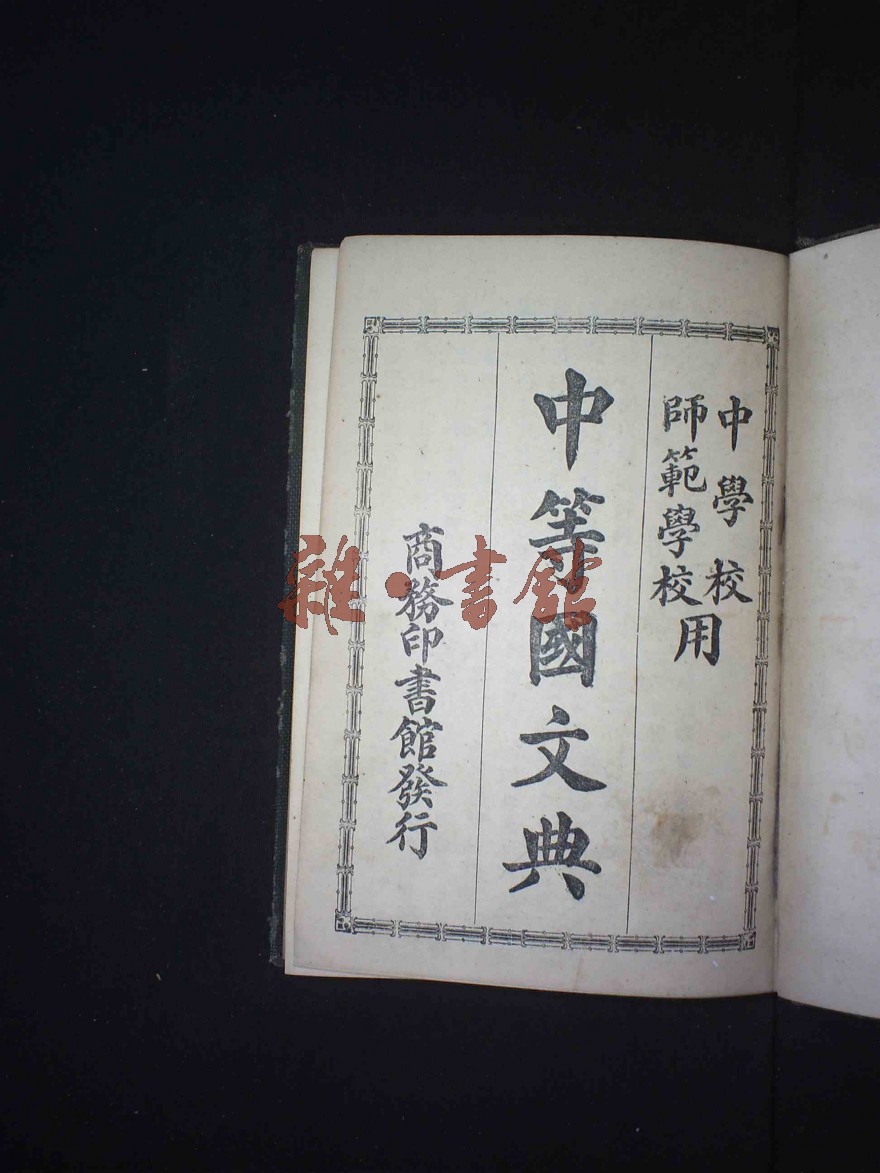 中學校
師範學校用
中等國文典
商務印書館發行
雜·書館